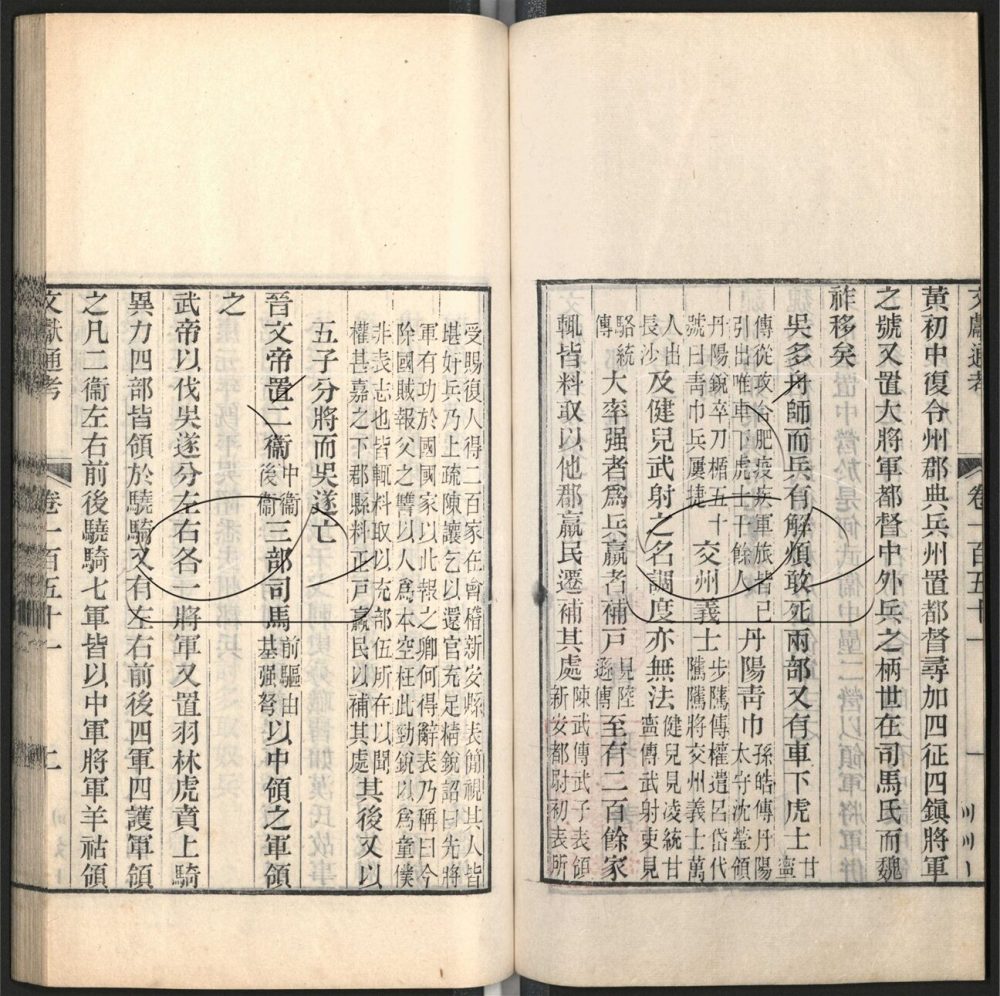 文獻通考 卷一百五十一
黃初中復令州郡典兵州置都督尋加四征四鎮將軍
之號又置大將軍都督中外兵之柄世在司馬氏而魏
祚移矣
吳多舟師而兵有解煩敢死兩部又有車下虎士甘寧
傳從攻合肥疫疾軍旅皆已引出唯車下虎士千餘人丹陽靑巾孫皓傳丹陽太守沈瑩領
丹陽銳卒刀楯五十號曰靑巾兵屢捷交州義士步騭傳權遣呂岱代騭騭將交州義士萬
人出長沙及健兒武射之名調度亦無法健兒見凌統甘寧傳武射吏見
駱統傳大率强者爲兵羸者補戶見陸遜傳至有二百餘家
輒皆料取以他郡羸民遷補其處陳武傳武子表領新安都尉初表所
受賜復人得二百家在會稽新安縣表簡視其人皆堪好兵乃上疏陳讓乞以還官充足精銳詔曰先將
軍有功於國國家以此報之卿何得辭表乃稱曰今除國賊報父之讐以人爲本空枉此勁銳以爲童僕
非表志也皆輒料取以充部伍所在以聞權甚嘉之下郡縣料正戶羸民以補其處其後又以
五子分將而吳遂亡
晉文帝置二衞中衞後衞三部司馬前驅由基强弩以中領之軍領
之
武帝以伐吳遂分左右各一將軍又置羽林虎賁上騎
異力四部皆領於驍騎又有左右前後四軍四護軍領
之凡二衞左右前後驍騎七軍皆以中軍將軍羊祜領
文獻通考 卷一百五十一